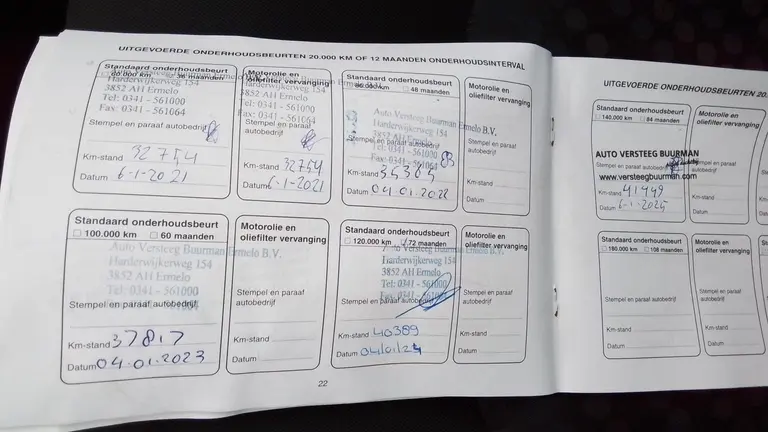 UITGEVOERDE ONDERHOUDSBEURTEN 20.000 KM OF 12 MAANDEN ONDERHOUDSINTERVAL
Standaard onderhoudsbeurt
60.000 km 36 maanden
Harderwijkerweg 154
3852 AH Ermelo
Tel: 0341 - 561000
Fax: 0341 - 561064
Stempel en paraaf autobedrijf
Km-stand 32754
Datum 6-1-2021
Motorolie en
oliefilter vervanging
Stempel en paraaf
autobedrijf
Km-stand 32754
Datum 6-1-2021
Standaard onderhoudsbeurt
80.000 km 48 maanden
Auto Versteeg Buurman Ermelo B.V.
Harderwijkerweg 154
3852 AH Ermelo
Tel: 0341 - 561000
Stempel en paraaf autobedrijf
Fax: 0341 - 561064
Km-stand 35365
Datum 04.01.2022
Motorolie en
oliefilter vervanging
Stempel en paraaf
autobedrijf
Km-stand
Datum
Standaard onderhoudsbeurt
100.000 km 60 maanden
Auto Versteeg Buurman Ermelo B.V.
Harderwijkerweg 154
3852 AH Ermelo
Tel: 0341 - 561000
Fax: 0341 - 561064
Stempel en paraaf autobedrijf
Km-stand 37817
Datum 04.01.2023
Motorolie en
oliefilter vervanging
Stempel en paraaf
autobedrijf
Km-stand
Datum
Standaard onderhoudsbeurt
120.000 km 72 maanden
Auto Versteeg Buurman Ermelo B.V.
Harderwijkerweg 154
3852 AH Ermelo
Tel: 0341 - 561000
Fax: 0341 - 561064
Stempel en paraaf autobedrijf
Km-stand 40389
Datum 04/01/24
Motorolie en
oliefilter vervanging
Stempel en paraaf
autobedrijf
Km-stand
Datum
22
UITGEVOERDE ONDERHOUDSBEURTEN 20.
Standaard onderhoudsbeurt
140.000 km 84 maanden
AUTO VERSTEEG BUURMAN
Stempel en paraaf autobedrijf
www.versteegbuurman.com
Km-stand 41949
Datum 6-1-2025
Motorolie en
oliefilter vervanging
Stempel en paraaf
autobedrijf
Km-stand
Datum
Standaard onderhoudsbeurt
180.000 km 108 maanden
Stempel en paraaf autobedrijf
Km-stand
Datum
Motorolie en
oliefilter vervanging
Stempel en paraaf
autobedrijf
Km-stand
Datum